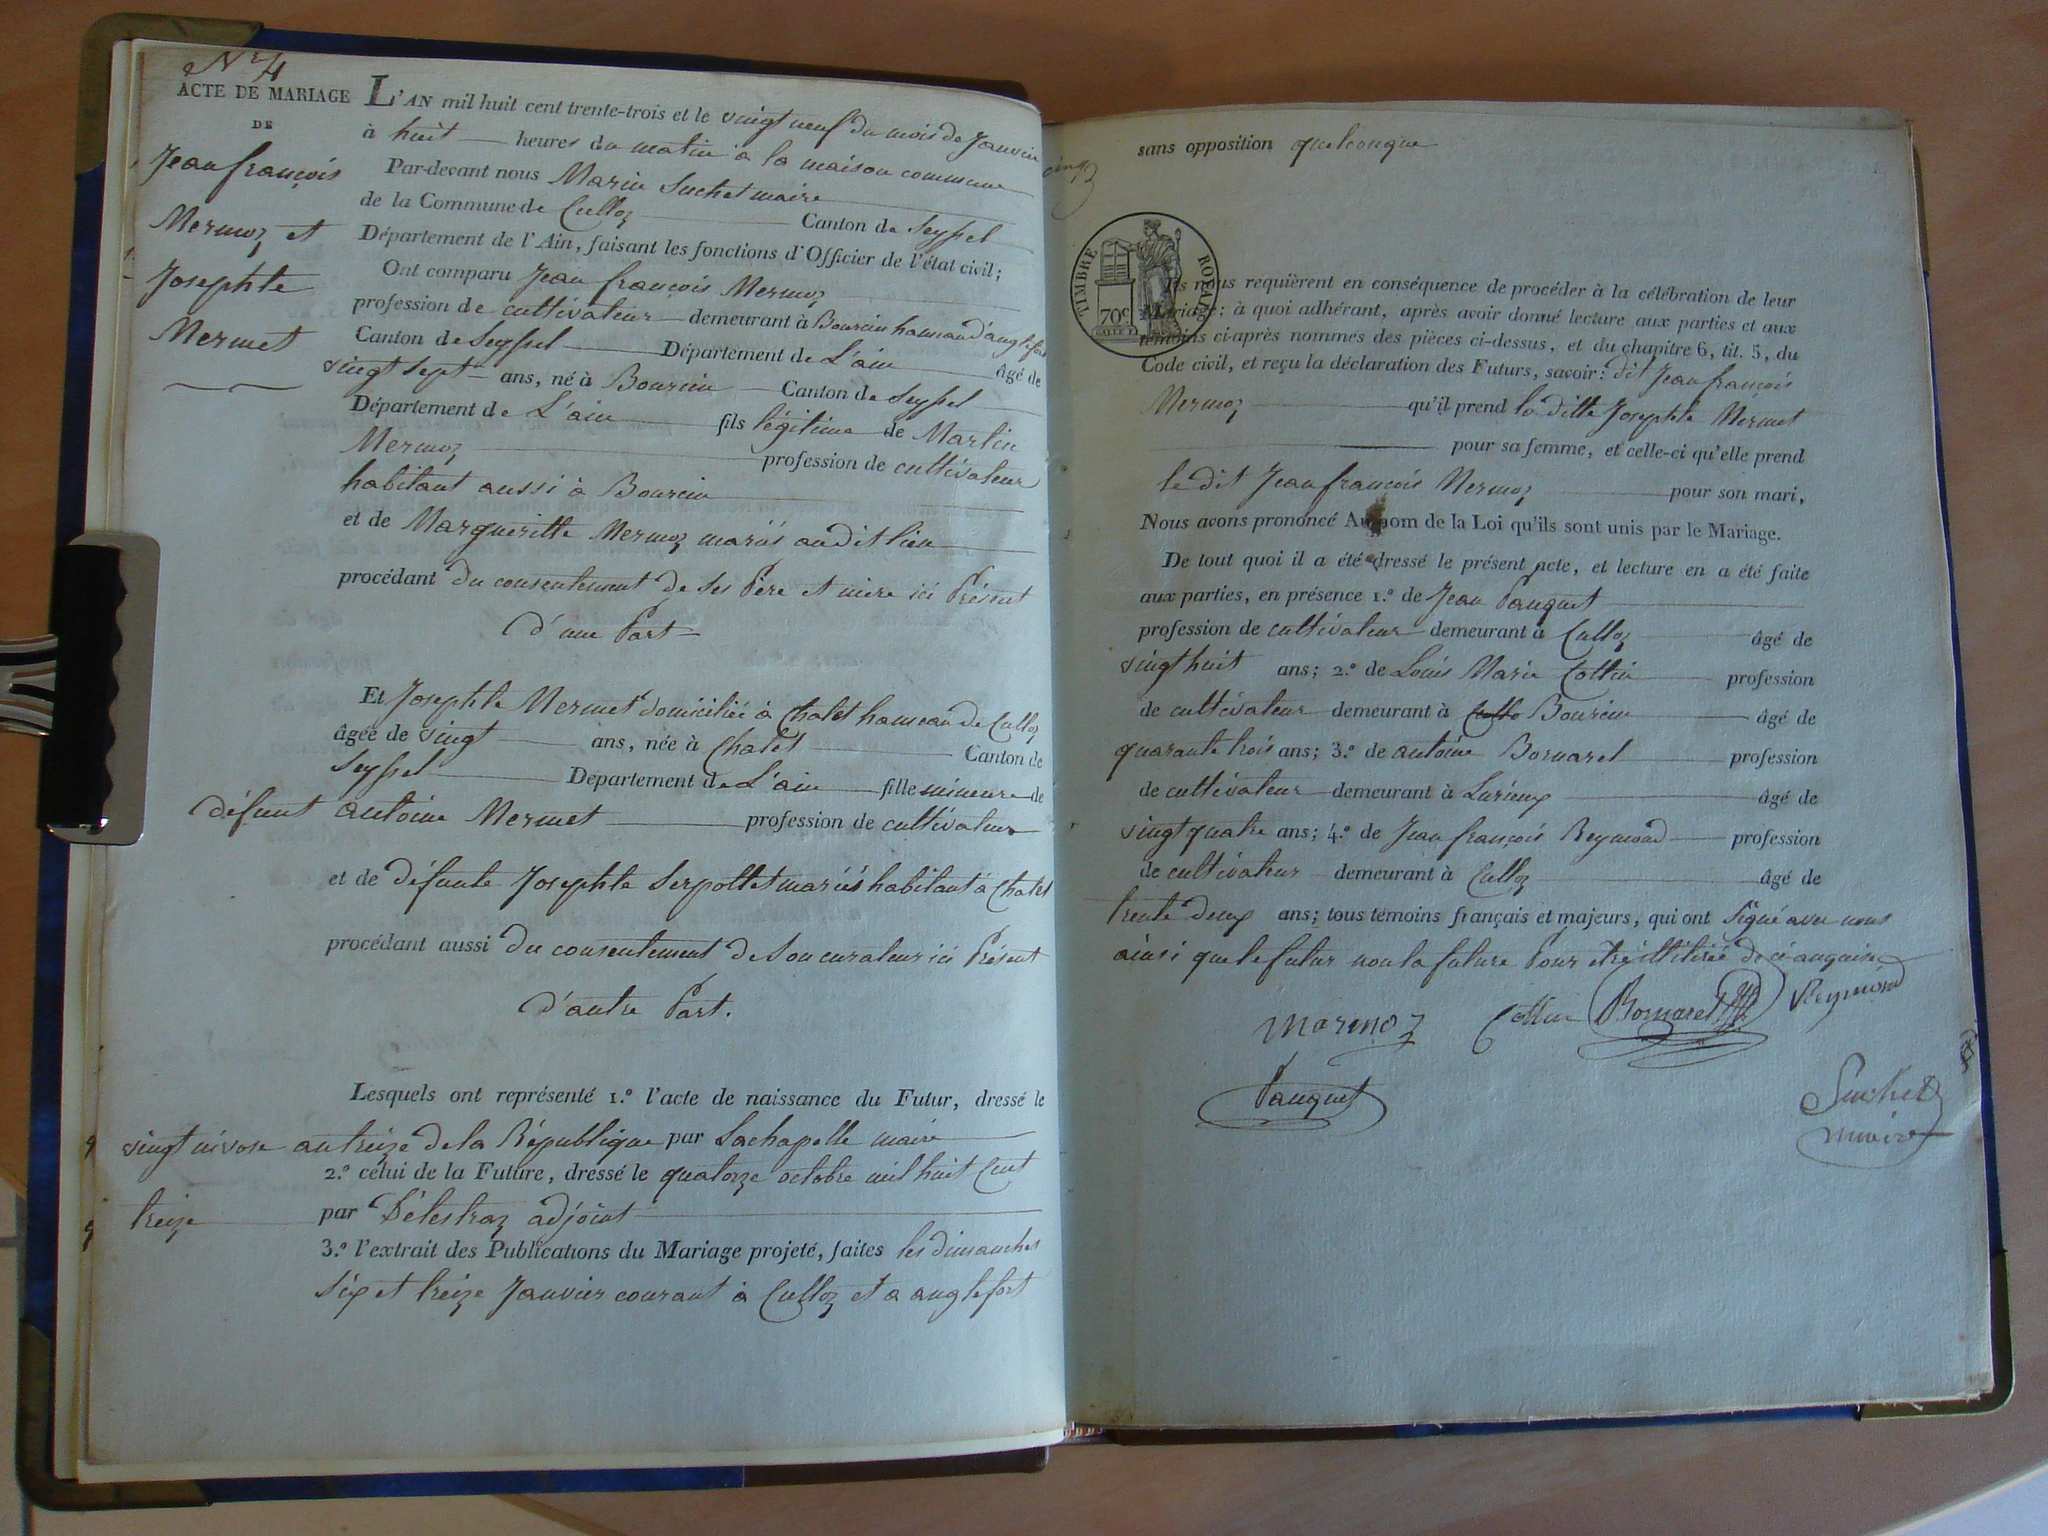 N° 4
ACTE DE MARIAGE
DE
Jean françois
Mermoz et
Josephte
Mermet
L'AN mil huit cent trente-trois et le vingt neuf du mois de Janvier
à huit heures du matin à la maison commune
Par-devant nous Marin Suchet maire
de la Commune de Culloz Canton de Seyssel
Département de l'Ain, faisant les fonctions d'Officier de l'état civil;
Ont comparu Jean françois Mermoz
profession de cultivateur demeurant à Bourcin hameau d'anglefort
Canton de Seyssel Département de L'ain âgé de
vingt sept ans, né à Bourcin Canton de Seyssel
Département de L'ain fils légitime de Martin
Mermoz profession de cultivateur
habitant aussi à Bourcin
et de Margueritte Mermoz mariés audit lieu
procédant du consentement de ses Père et mère ici Présent
d'une Part
Et Josephte Mermet domiciliée à Chatel hameau de Culloz
âgée de vingt ans, née à Chatel Canton de
Seyssel Département de L'ain fille mineure de
défunt antoine Mermet profession de cultivateur
et de défunte Josephte Serpollet mariés habitant à Chatel
procédant aussi du consentement de Son curateur ici Présent
d'autre Part.
Lesquels ont représenté 1.° l'acte de naissance du Futur, dressé le
vingt nivose an treize de la République par Lachapelle maire
2.° celui de la Future, dressé le quatorze octobre mil huit Cent
treize par Délestraz adjoint
3.° l'extrait des Publications du Mariage projeté, faites les dimanches
six et treize Janvier courant à Culloz et a anglefort
cinq
sans opposition quelconque
TIMBRE ROYAL
70c
Ils nous requièrent en conséquence de procéder à la célébration de leur
Mariage; à quoi adhérant, après avoir donné lecture aux parties et aux
témoins ci-après nommés des pièces ci-dessus, et du chapitre 6, tit. 5, du
Code civil, et reçu la déclaration des Futurs, savoir: dit Jean françois
Mermoz qu'il prend la ditte Josephte Mermet
pour sa femme, et celle-ci qu'elle prend
le dit Jean francois Mermoz pour son mari,
Nous avons prononcé Au nom de la Loi qu'ils sont unis par le Mariage.
De tout quoi il a été dressé le présent acte, et lecture en a été faite
aux parties, en présence 1.° de Jean Pauquet
profession de cultivateur demeurant à Culloz âgé de
vingt huit ans; 2.° de Louis Marie Cottin profession
de cultivateur demeurant à Bourcin âgé de
quarante trois ans; 3.° de antoine Bornarel profession
de cultivateur demeurant à Lurieux âgé de
vingt quatre ans; 4.° de Jean françois Reymond profession
de cultivateur demeurant à Culloz âgé de
trente deux ans; tous témoins français et majeurs, qui ont Signé avec nous
ainsi que le futur non la future Pour etre illitirée de ce enquise
Marmoz Cottin Bornarel Reymond
Pauquet
Suchet
maire